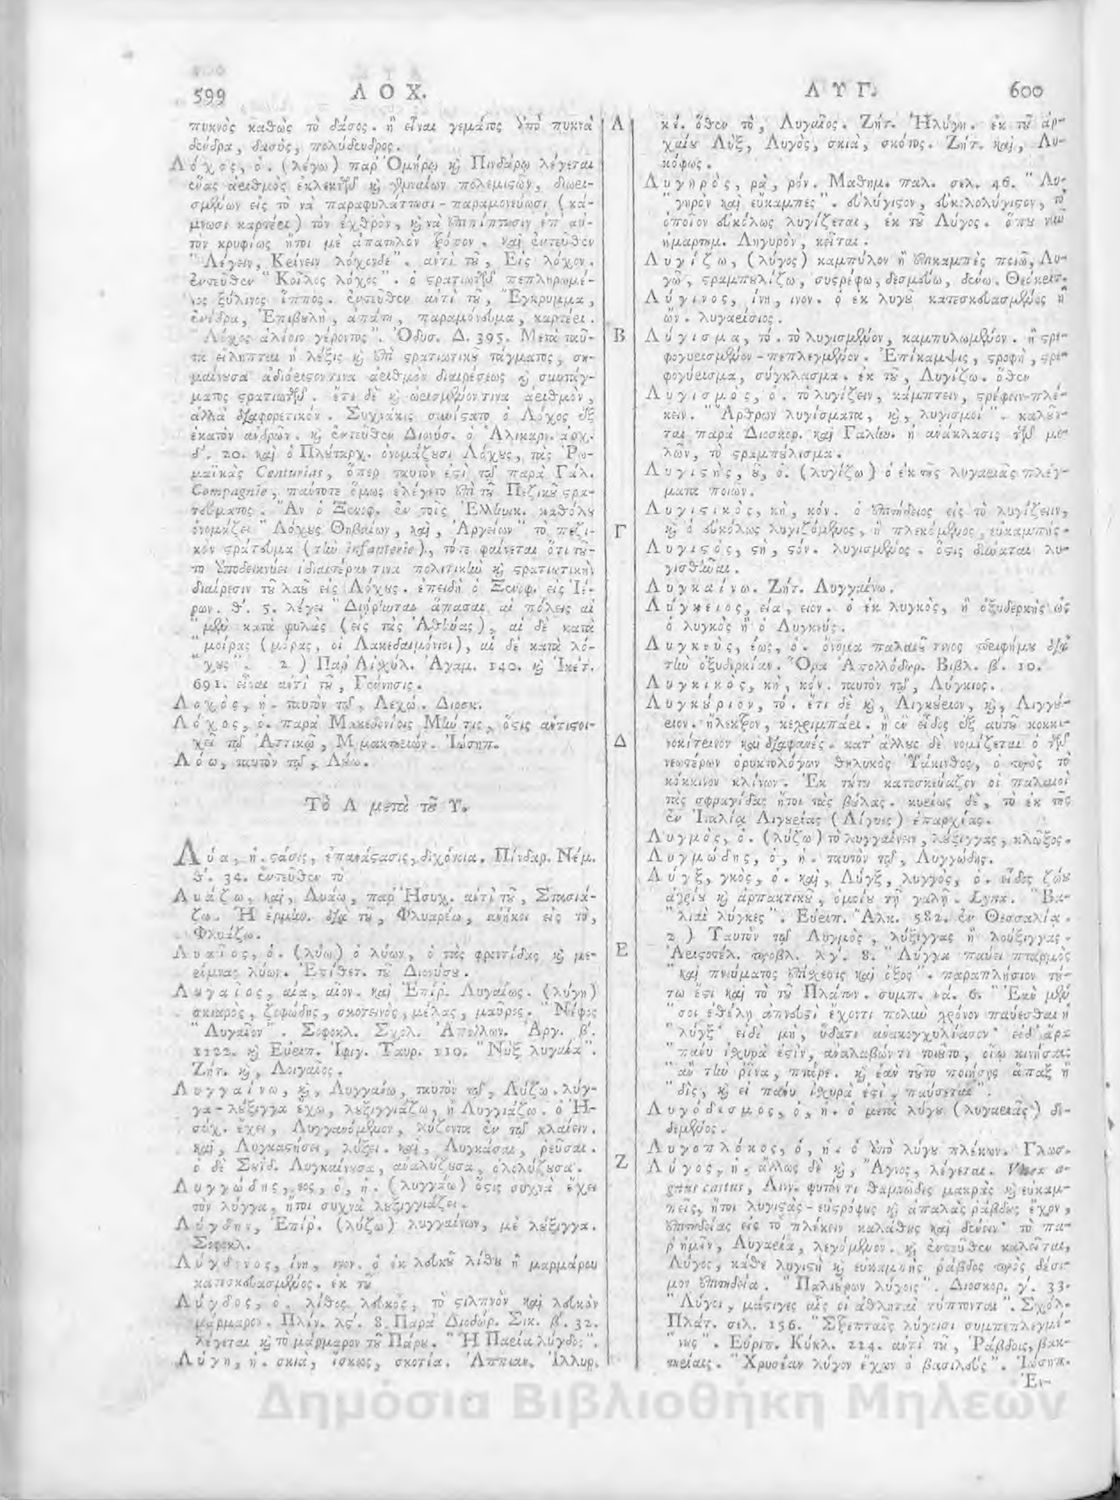 599 ΛΟΧ.
πυκνὸς καθὼς τὸ δάσος. ἢ εἶναι γεμάτος ὑπὸ πυκνὰ
δένδρα, δασὺς, πολύδενδρος.
Λόχος, ὁ. (λέγω) παρ' Ὁμήρῳ καὶ Πινδάρῳ λέγεται
ἕνας ἀριθμὸς ἐκλεκτῶν καὶ γενναίων πολεμιστῶν, διωρι-
σμένων εἰς τὸ νὰ παραφυλάττωσι - παραμονεύωσι (κά-
μνωσι καρτέρι) τὸν ἐχθρὸν, καὶ νὰ ἐπιπίπτωσιν ἐπ' αὐ-
τὸν κρυφίως ἤτοι μὲ ἀπατηλὸν τρόπον. καὶ ἐντεῦθεν
"Λέγειν, Κρίνειν λόχονδε". ἀντὶ τοῦ, Εἰς λόχον.
ἐντεῦθεν "Κοῖλος λόχος". ὁ στρατιωτῶν πεπληρωμέ-
νος ξύλινος ἵππος. ἐντεῦθεν ἀντὶ τοῦ, Ἔγκρυμμα,
ἐνέδρα, Ἐπιβουλὴ, ἀπάτη, παραμόνευμα, καρτέρι.
"Λόχος ἁλίοιο γέροντος". Ὀδυσ. Δ. 395. Μετὰ ταῦ-
τα εἴληπται ἡ λέξις καὶ ἐπὶ στρατιωτικοῦ τάγματος, ση-
μαίνουσα ἀδιόριστόν τινα ἀριθμὸν διαιρέσεως καὶ συντάγ-
ματος στρατιωτῶν. ἔτι δὲ καὶ ὡρισμένον τινα ἀριθμὸν,
ἀλλὰ διαφορετικόν. Συχνάκις συνίστατο ὁ Λόχος ἐξ
ἑκατὸν ἀνδρῶν. καὶ ἐντεῦθεν Διονύσ. ὁ Ἁλικαρν. ἀρχ.
δ'. 20. καὶ ὁ Πλούταρχ. ὀνομάζουσι Λόχους, τὰς Ῥω-
μαϊκὰς Centurias, ὅπερ ταυτόν ἐστι τῷ παρὰ Γάλ.
Compagnie, πάντοτε ὅμως ἐλέγετο ἐπὶ τοῦ Πεζικοῦ στρα-
τεύματος. Ἂν ὁ Ξενοφ. ἐν τοῖς Ἑλληνικ. καθόλου
ὀνομάζει "Λόχους Θηβαίων, καὶ, Ἀργείων" τὸ πεζι-
κὸν στράτευμα (τὴν infanterie), τότε φαίνεται ὅτι τοῦ-
το ὑποδεικνύει ἰδιαιτέραν τινα πολιτικὴν καὶ στρατιωτικὴν
διαίρεσιν τοῦ λαοῦ εἰς Λόχους. ἐπειδὴ ὁ Ξενοφ. εἰς Ἱέ-
ρων. θ'. 5. λέγει "Διῄρηνται ἅπασαι αἱ πόλεις αἱ
"μὲν κατὰ φυλὰς (εἰς τὰς Ἀθήνας), αἱ δὲ κατὰ
"μοίρας (μόρας, οἱ Λακεδαιμόνιοι), αἱ δὲ κατὰ λό-
"χους". 2) Παρ' Αἰσχύλ. Ἀγαμ. 140. καὶ Ἱκέτ.
691. εἶναι ἀντὶ τοῦ, Γέννησις.
Λοχὸς, ἡ. ταυτὸν τῷ, Λεχώ. Διοσκ.
Λόχος, ὁ. παρὰ Μακεδονίοις Μήν τις, ὅστις ἀντιστοι-
χεῖ τῷ Ἀττικῷ, Μαιμακτηριών. Ἰώσηπ.
Λόω, ταυτὸν τῷ, Λούω.
Τὸ Λ μετὰ τοῦ Υ.
Λύα, ἡ. στάσις, ἐπανάστασις, διχόνοια. Πίνδαρ. Νέμ.
θ'. 34. ἐντεῦθεν τὸ
Λυάζω, καὶ, Λυάω, παρ' Ἡσυχ. ἀντὶ τοῦ, Στασιά-
ζω. Ἡ ἑρμην. διὰ τοῦ, Φλυαρέω, ἀνήκει εἰς τὸ,
Φλυάζω.
Λυαῖος, ὁ. (λύω) ὁ λύων, ὁ τὰς φροντίδας καὶ με-
ρίμνας λύων. Ἐπίθετ. τοῦ Διονύσου.
Λυγαῖος, αία, αῖον. καὶ Ἐπίρ. Λυγαίως. (λύγη)
σκιαρὸς, ζοφώδης, σκοτεινὸς, μέλας, μαῦρος. "Νέφος
"Λυγαῖον". Σοφοκλ. Σχολ. Ἀπολλων. Ἀργ. β'.
1122. καὶ Εὐριπ. Ἰφιγ. Ταυρ. 110. "Νὺξ λυγαία".
Ζήτ. καὶ, Λοιγαῖος.
Λυγγαίνω, καὶ, Λυγγάνω, ταυτὸν τῷ, Λύζω. λύγ-
γα - λύξιγγα ἔχω, λυξιγγιάζω, ἢ Λυγγιάζω. ὁ Ἡ-
σύχ. ἔχει, Λυγγανόμενον, λύζοντα ἐν τῷ κλαίειν.
καὶ, Λυγκαστήσει, λύξει. καὶ, Λυγκάσαι, ῥεῦσαι.
ὁ δὲ Σουΐδ. Λυγκαίνουσα, ἀναλύζουσα, ὀλολύζουσα.
Λυγγώδης, εος, ὁ, ἡ. (λυγγάω) ὅστις συχνὰ ἔχει
τὸν λύγγα, ἤτοι συχνὰ λυξιγγιάζει.
Λύγδην, Ἐπίρ. (λύζω) λυγγαίνων, μὲ λύξιγγα.
Σοφοκλ.
Λύγδινος, ίνη, ινον. ὁ ἐκ λευκοῦ λίθου ἢ μαρμάρου
κατεσκευασμένος. ἐκ τοῦ
Λύγδος, ὁ. λίθος λευκὸς, τὸ στιλπνὸν καὶ λευκὸν
μάρμαρον. Πλίν. λϛ'. 8. Παρὰ Διοδώρ. Σικ. β'. 52.
λέγεται καὶ τὸ μάρμαρον τοῦ Πάρου. "Ἡ Παρία λύγδος".
Λύγη, ἡ. σκιὰ, ἴσκιος, σκοτία. Ἀππιαν. Ἰλλυρ.
Α
Β
Γ
Δ
Ε
Ζ
ΛΥΓ. 600
κέ. ὅθεν τὸ, Λυγαῖος. Ζήτ. Ἠλύγη. ἐκ τοῦ ἀρ-
χαίου Λὺξ, Λυγὸς, σκιὰ, σκότος. Ζήτ. καὶ, Λυ-
κόφως.
Λυγηρὸς, ρὰ, ρόν. Μαθημ. παλ. σελ. 46. "Λυ-
"γηρὸν καὶ εὐκαμπές". εὐλύγιστον, εὐκολολύγιστον, τὸ
ὁποῖον εὐκόλως λυγίζεται, ἐκ τοῦ Λύγος. ὅπου νῦν
ἡμαρτημ. Λιγυρὸν, κεῖται.
Λυγίζω, (λύγος) καμπύλον ἢ ἐπικαμπὲς ποιῶ, Λυ-
γῶ, στραμπουλίζω, συστρέφω, δεσμεύω, δένω. Θεόκριτ.
Λύγινος, ίνη, ινον. ὁ ἐκ λύγου κατεσκευασμένος ἢ
ὤν. λυγαρίσιος.
Λύγισμα, τό. τὸ λυγισμένον, καμπυλωμένον. ἢ στρι-
φογυρισμένον - πεπλεγμένον. Ἐπίκαμψις, στροφὴ, στρι-
φογύρισμα, σύγκλασμα. ἐκ τοῦ, Λυγίζω. ὅθεν
Λυγισμὸς, ὁ. τὸ λυγίζειν, κάμπτειν, στρέφειν - πλέ-
κειν. "Ἄρθρων λυγίσματα, καὶ, λυγισμοὶ". καλοῦν-
ται παρὰ Διοσκορ. καὶ Γαλην. ἡ ἀνάκλασις τῶν με-
λῶν, τὸ στραμπούλισμα.
Λυγιστὴς, οῦ, ὁ. (λυγίζω) ὁ ἐκ τῆς λυγαριᾶς πλέγ-
ματα ποιῶν.
Λυγιστικὸς, κὴ, κόν. ὁ ἐπιτήδειος εἰς τὸ λυγίζειν,
καὶ ὁ εὐκόλως λυγιζόμενος, ἢ πλεκόμενος, εὐκαμπής.
Λυγιστὸς, στὴ, στόν. λυγισμένος. ὅστις δύναται λυ-
γισθῆναι.
Λυγκαίνω. Ζήτ. Λυγγαίνω.
Λύγκειος, εία, ειον. ὁ ἐκ λυγκὸς, ἢ ὀξυδερκὴς ὡς
ὁ λυγκὸς ἢ ὁ Λυγκεύς.
Λυγκεὺς, έως, ὁ. ὄνομα παλαιοῦ τινος περιφήμου διὰ
τὴν ὀξυδερκίαν. Ὅρα Ἀπολλόδωρ. Βιβλ. β'. 10.
Λυγκικὸς, κὴ, κόν. ταυτὸν τῷ, Λύγκιος.
Λυγκούριον, τό. ἔτι δὲ καὶ, Λιγκούριον, καὶ, Λιγγού-
ριον. ἤλεκτρον, κεχριμπάρι. ἢ ἓν εἶδος ἐξ αὐτοῦ κοκκι-
νοκίτρινον καὶ διαφανές. κατ' ἄλλους δὲ νομίζεται ὁ τῶν
νεωτέρων ὀρυκτολόγων θηλυκὸς Ὑάκινθος, ὁ πρὸς τὸ
κόκκινον κλίνων. Ἐκ τούτου κατεσκεύαζον οἱ παλαιοὶ
τὰς σφραγίδας ἤτοι τὰς βούλας. κυρίως δὲ, τὸ ἐκ τῆς
ἐν Ἰταλίᾳ Λιγυρίας (Λίγυις) ἐπαρχίας.
Λυγμὸς, ὁ. (λύζω) τὸ λυγγαίνειν, λύξιγγας, κλῶξος.
Λυγμώδης, ὁ, ἡ. ταυτὸν τῷ, Λυγγώδης.
Λύγξ, γκὸς, ὁ. καὶ, Λύγξ, λυγγὸς, ὁ. εἶδος ζώου
ἀγρίου καὶ ἁρπακτικοῦ, ὁμοίου τῇ γαλῇ. Lynx. "Βα-
"λιαὶ λύγκες". Εὐριπ. Ἄλκ. 582. ἐν Θεσσαλίᾳ.
2) Ταυτὸν τῷ Λυγμὸς, λύξιγγας ἢ λούξιγγας.
Ἀριστοτέλ. προβλ. λγ'. 8. "Λύγγα παύει πταρμὸς
"καὶ πνεύματος ἐπίσχεσις καὶ ὄξος". παραπλήσιον τού-
τῳ ἐστὶ καὶ τὸ τοῦ Πλάτων. συμπ. νά. 6. "Ἐὰν μέν
"σοι ἐθέλῃ ἀπνευστὶ ἔχοντι πολὺν χρόνον παύεσθαι ἡ
"λύγξ. εἰ δὲ μὴ, ὕδατι ἀνακογχυλίασον. εἰ δ' ἄρα
"πάνυ ἰσχυρά ἐστιν, ἀναλαβών τι τοιοῦτο, οἵῳ κινήσαις
"ἂν τὴν ῥῖνα, πτάρε. καὶ ἐὰν τοῦτο ποιήσῃς ἅπαξ ἢ
"δὶς, καὶ εἰ πάνυ ἰσχυρά ἐστι, παύσεται".
Λυγόδεσμος, ὁ, ἡ. ὁ μετὰ λύγου (λυγαριᾶς) δε-
δεμένος.
Λυγοπλόκος, ὁ, ἡ. ὁ ὑπὸ λύγου πλέκων. Γλωσ.
Λύγος, ἡ. ἄλλως δὲ καὶ, Ἄγνος, λέγεται. Vitex a-
gnus castus, Λινν. φυτόν τι θαμνῶδες μακρὰς καὶ εὐκαμ-
πεῖς, ἤτοι λυγιστὰς - εὐστρόφους καὶ ἁπαλὰς ῥάβδους ἔχον,
ἐπιτηδείας εἰς τὸ πλέκειν καλάθους καὶ δένειν. τὸ πα-
ρ' ἡμῖν, Λυγαρία, λεγόμενον. καὶ ἐντεῦθεν καλεῖται,
Λύγος, κάθε λυγιστὴ καὶ εὐκαμπὴς ῥάβδος πρὸς δέσι-
μον ἐπιτηδεία. "Παλιούρων λύγοις". Διοσκορ. γ'. 33.
"Λύγοι, μάστιγες αἷς οἱ ἀθληταὶ τύπτονται". Σχόλ.
Πλάτ. σελ. 156. "Στρεπταῖς λύγοισι συμπεπλεγμέ-
"νους". Εὐριπ. Κύκλ. 224. ἀντὶ τοῦ, Ῥάβδοις, βακ-
τηρίαις. "Χρυσέαν λύγον ἔχων ὁ βασιλεύς". Ἰώσηπ.
Ἐν-
Δημόσια Βιβλιοθήκη Μηλεών